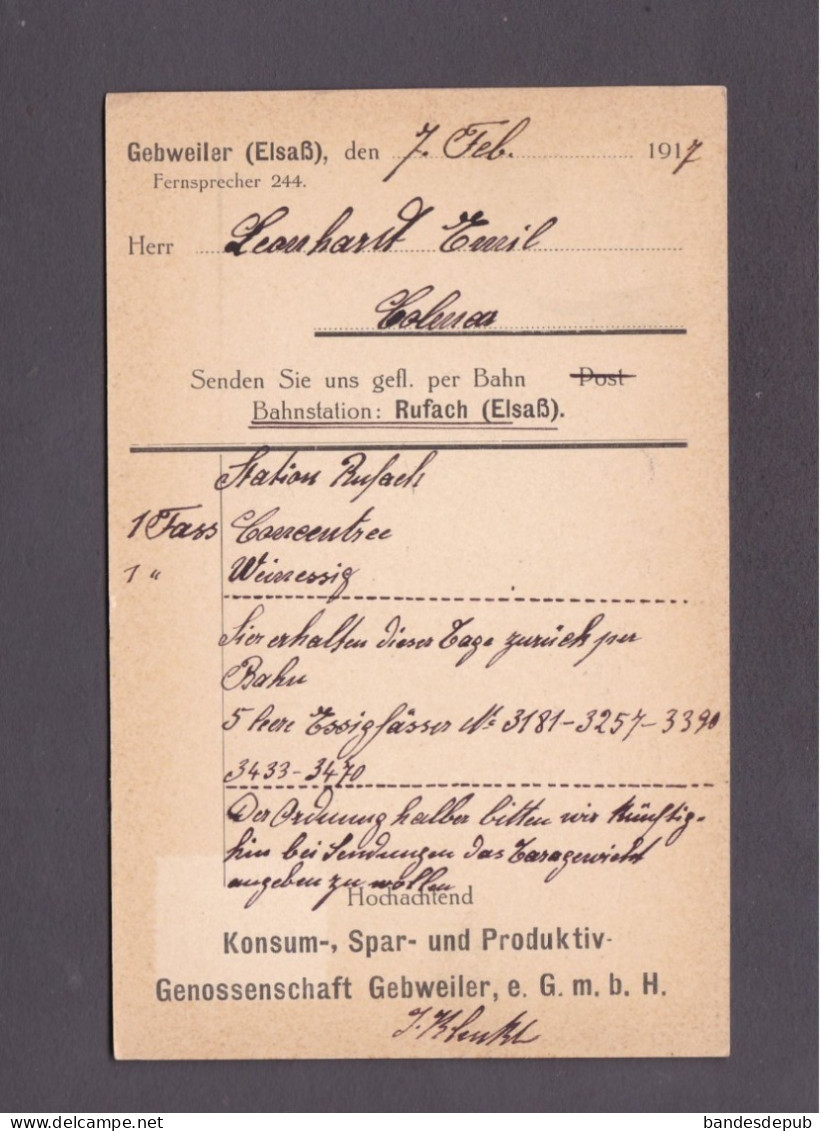 Gebweiler (Elsaß), den 7. Feb. 1917
Fernsprecher 244.
Herr Leonhardt Emil
Colmar
Senden Sie uns gefl. per Bahn Post
Bahnstation: Rufach (Elsaß).
Station Rufach
1 Fass Concentree
1 " Weinessig
Sie erhalten dieser Tage zurück per
Bahn
5 leere Essigfässer No 3181-3257-3390
3433-3470
Der Ordnung halber bitten wir künftig-
hin bei Sendungen das Taragewicht
angeben zu wollen
Hochachtend
Konsum-, Spar- und Produktiv-
Genossenschaft Gebweiler, e. G. m. b. H.
bandesdepub